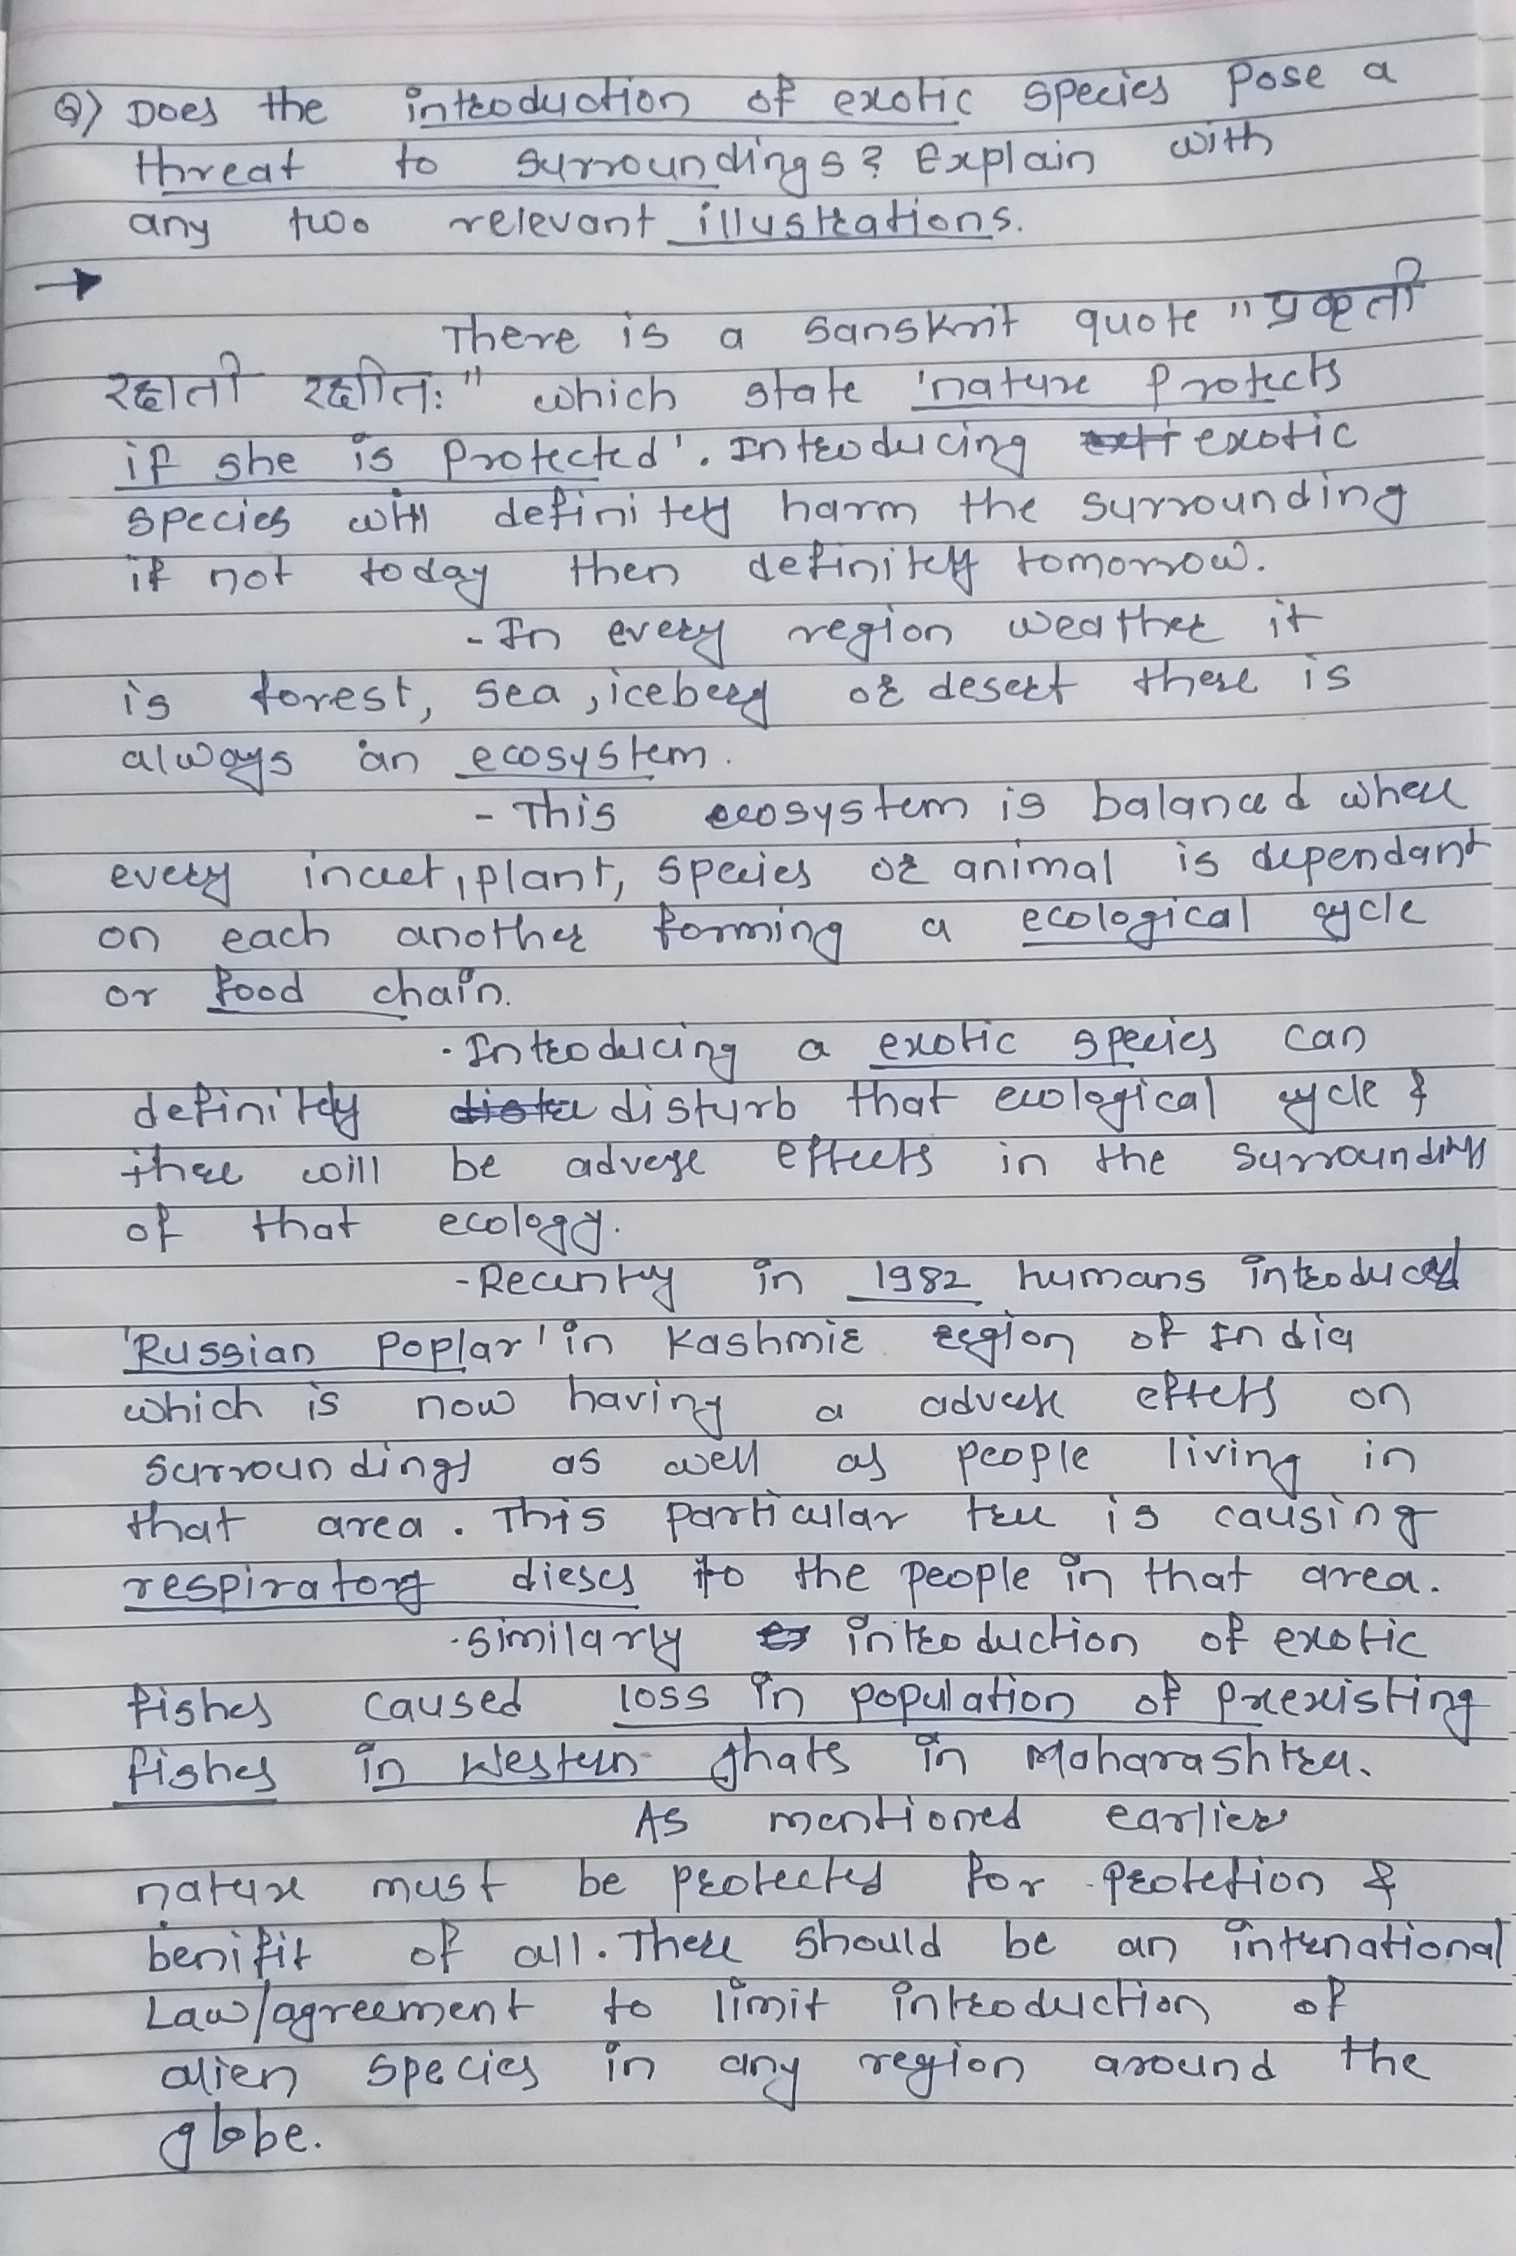 Q) Does the introduction of exotic species pose a
threat to surroundings? Explain with
any two relevant illustrations.
→
There is a sanskrit quote "प्रकृती
रक्षती रक्षीतः" which state 'nature protects
if she is protected'. Introducing exotic
species will definitely harm the surrounding
if not today then definitely tomorrow.
- In every region weather it
is forest, sea, iceberg or desert there is
always an ecosystem.
- This ecosystem is balanced where
every incect, plant, species or animal is dependant
on each another forming a ecological cycle
or food chain.
- Introducing a exotic species can
definitely disturb that ecological cycle &
there will be adverse effects in the surroundings
of that ecology.
- Recently in 1982 humans introduced
'Russian Poplar' in Kashmir region of India
which is now having a adverse effects on
surroundings as well as people living in
that area. This particular tree is causing
respiratory dieses to the people in that area.
- similarly introduction of exotic
fishes caused loss in population of preexisting
fishes in Western ghats in Maharashtra.
As mentioned earlier
nature must be protected for protetion &
benifit of all. There should be an international
Law/agreement to limit introduction of
alien species in any region around the
globe.